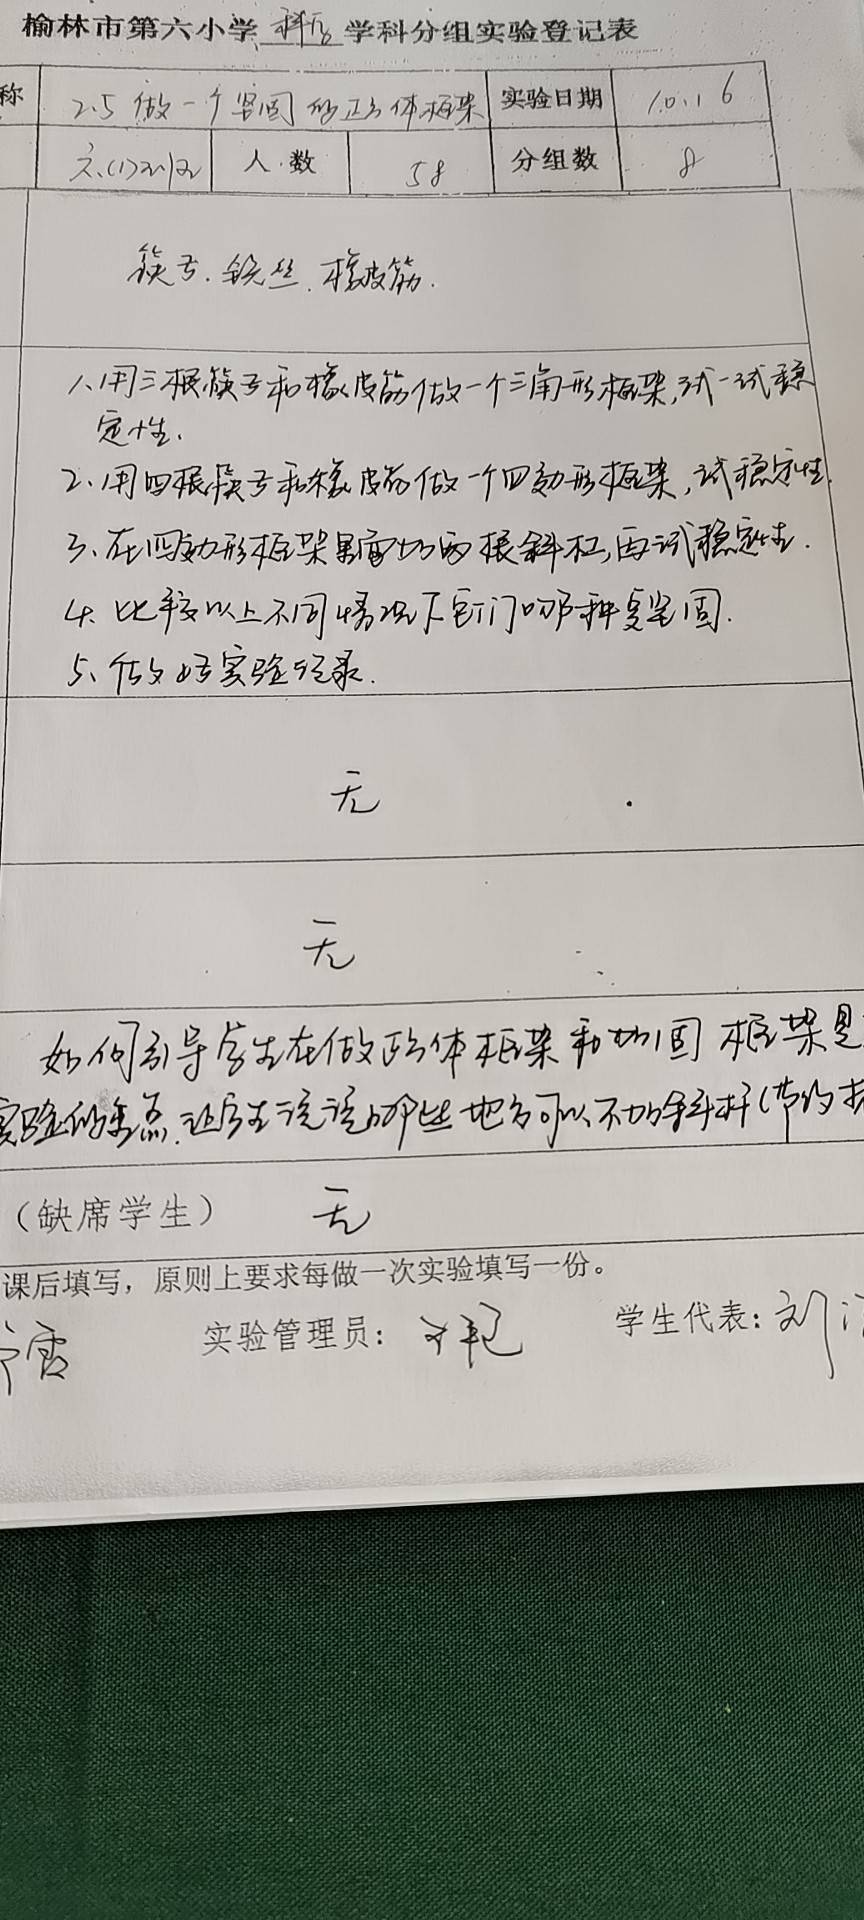 榆林市第六小学 科学 学科分组实验登记表
称 2.5 做一个坚固的正方体框架 实验日期 10.16
六.(1) 人数 58 分组数 8
筷子.铁丝.橡皮筋.
1、用三根筷子和橡皮筋做一个三角形框架,试一试稳
定性.
2、用四根筷子和橡皮筋做一个四边形框架,试稳定性.
3、在四边形框架里面加两根斜杠,再试稳定性.
4、比较以上不同情况下它们哪种更坚固.
5、做好实验记录.
无
无
如何引导学生在做正方体框架和加固框架是
实验的重点.让学生说说哪些地方可以不加斜杆(节约
(缺席学生) 无
课后填写，原则上要求每做一次实验填写一份。
雷 实验管理员: 学生代表: 刘